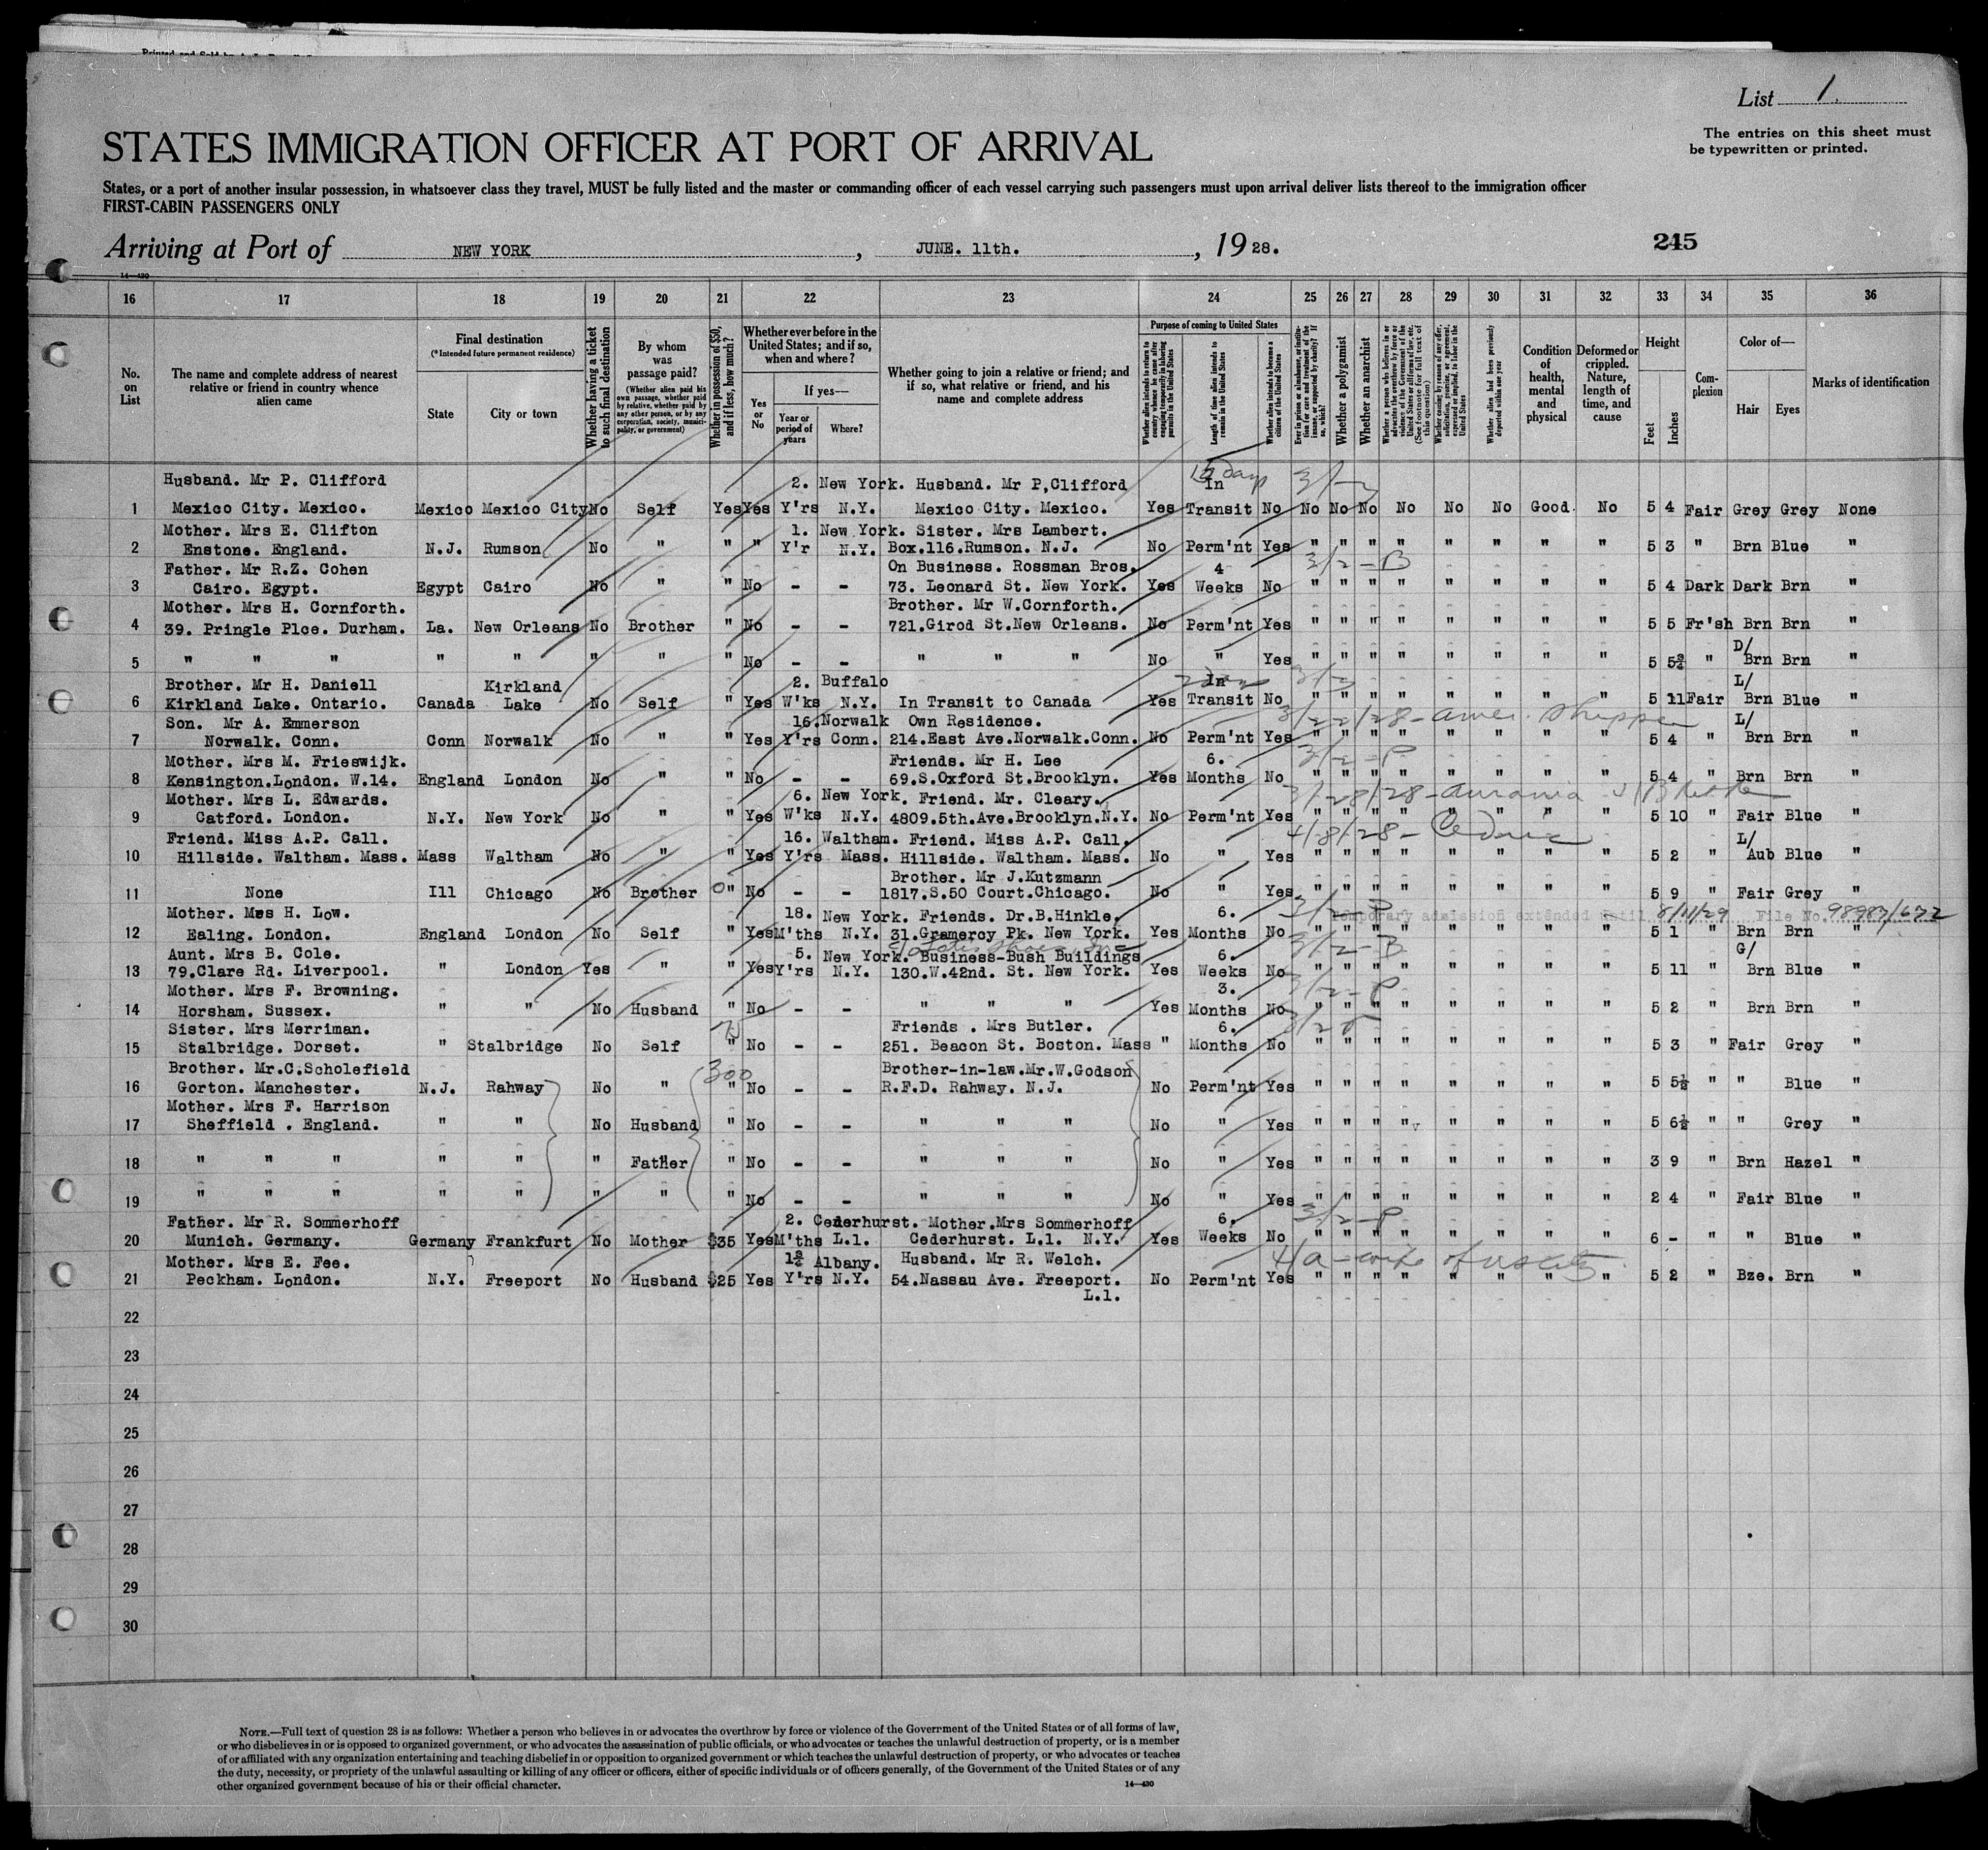 List 1.
The entries on this sheet must
be typewritten or printed.
STATES IMMIGRATION OFFICER AT PORT OF ARRIVAL
States, or a port of another insular possession, in whatsoever class they travel, MUST be fully listed and the master or commanding officer of each vessel carrying such passengers must upon arrival deliver lists thereof to the immigration officer
FIRST-CABIN PASSENGERS ONLY
Arriving at Port of NEW YORK , JUNE. 11th. , 19 28. 245
14—430
16 17 18 19 20 21 22 23 24 25 26 27 28 29 30 31 32 33 34 35 36
No. on List
The name and complete address of nearest relative or friend in country whence alien came
Final destination
(*Intended future permanent residence)
State City or town
Whether having a ticket to such final destination
By whom was passage paid?
(Whether alien paid his own passage, whether paid by relative, whether paid by any other person, or by any corporation, society, municipality, or government)
Whether in possession of $50, and if less, how much?
Whether ever before in the United States; and if so, when and where?
Yes or No
If yes—
Year or period of years
Where?
Whether going to join a relative or friend; and if so, what relative or friend, and his name and complete address
Purpose of coming to United States
Length of time alien intends to remain in the United States
Whether alien intends to become a citizen of the United States
Whether a polygamist
Whether an anarchist
Condition of health, mental and physical
Deformed or crippled. Nature, length of time, and cause
Height
Feet Inches
Complexion
Color of—
Hair Eyes
Marks of identification
Husband. Mr P. Clifford 2. New York. Husband. Mr P,Clifford In
1 Mexico City. Mexico. Mexico Mexico City No Self Yes Yes Y'rs N.Y. Mexico City. Mexico. Yes Transit No No No No No No No Good. No 5 4 Fair Grey Grey None
Mother. Mrs E. Clifton 1. New York. Sister. Mrs Lambert.
2 Enstone. England. N.J. Rumson No " " " Y'r N.Y. Box.116.Rumson. N.J. No Perm'nt Yes " " " " " " " " 5 3 " Brn Blue "
Father. Mr R.Z. Cohen On Business. Rossman Bros. 4 3/2-B
3 Cairo. Egypt. Egypt Cairo No " " No - - 73. Leonard St. New York. Yes Weeks No " " " " " " " " 5 4 Dark Dark Brn "
Mother. Mrs H. Cornforth. Brother. Mr W.Cornforth.
4 39. Pringle Plce. Durham. La. New Orleans No Brother " No - - 721.Girod St.New Orleans. No Perm'nt Yes " " " " " " " " 5 5 Fr'sh Brn Brn "
D/
5 " " " " " " " " No - - " " " No " Yes " " " " " " " " 5 5¾ " Brn Brn "
Brother. Mr H. Daniell Kirkland 2. Buffalo In L/
6 Kirkland Lake. Ontario. Canada Lake No Self " Yes W'ks N.Y. In Transit to Canada Yes Transit No " " " " " " " " 5 11 Fair Brn Blue "
Son. Mr A. Emmerson 16. Norwalk Own Residence. 3/22/28-Amer. Shipper L/
7 Norwalk. Conn. Conn Norwalk No " " Yes Y'rs Conn. 214.East Ave.Norwalk.Conn. No Perm'nt Yes " " " " " " " " 5 4 " Brn Brn "
Mother. Mrs M. Frieswijk. Friends. Mr H. Lee 6. 3/2-P
8 Kensington.London. W.14. England London No " " No - - 69.S.Oxford St.Brooklyn. Yes Months No " " " " " " " " 5 4 " Brn Brn "
Mother. Mrs L. Edwards. 6. New York. Friend. Mr. Cleary. 3/28/28-Aurania
9 Catford. London. N.Y. New York No " " Yes W'ks N.Y. 4809.5th.Ave.Brooklyn.N.Y. No Perm'nt Yes " " " " " " " " 5 10 " Fair Blue "
Friend. Miss A.P. Call. 16. Waltham. Friend. Miss A.P. Call. 4/8/28-Cedric L/
10 Hillside. Waltham. Mass. Mass Waltham No " " Yes Y'rs Mass. Hillside. Waltham. Mass. No " Yes " " " " " " " " 5 2 " Aub Blue "
Brother. Mr J.Kutzmann
11 None Ill Chicago No Brother 0 " No - - 1817.S.50 Court.Chicago. No " Yes " " " " " " " " 5 9 " Fair Grey "
Mother. Mrs H. Low. 18. New York. Friends. Dr.B.Hinkle. 6. Temporary admission extended until 8/11/29 File No. 98987/672
12 Ealing. London. England London No Self " Yes M'ths N.Y. 31.Gramercy Pk. New York. Yes Months No " " " " " " " " 5 1 " Brn Brn "
Aunt. Mrs B. Cole. 5. New York. Business-Bush Buildings 6. 3/2-B G/
13 79.Clare Rd. Liverpool. " London Yes " " Yes Y'rs N.Y. 130.W.42nd. St. New York. Yes Weeks No " " " " " " " " 5 11 " Brn Blue "
Mother. Mrs F. Browning. 3. 3/2-P
14 Horsham. Sussex. " " No Husband " No - - " " " Yes Months No " " " " " " " " 5 2 Brn Brn "
Sister. Mrs Merriman. Friends . Mrs Butler. 6.
15 Stalbridge. Dorset. " Stalbridge No Self " No - - 251. Beacon St. Boston. Mass " Months No " " " " " " " " 5 3 " Fair Grey "
Brother. Mr.C.Scholefield 300 Brother-in-law.Mr.W.Godson
16 Gorton. Manchester. N.J. Rahway No " " No - - R.F.D. Rahway. N.J. No Perm'nt Yes " " " " " " " " 5 5½ " " Blue "
Mother. Mrs F. Harrison
17 Sheffield . England. " " No Husband " No - - " " " No " Yes " " " " " " " " 5 6½ " " Grey "
18 " " " " " " Father " No - - " " " No " Yes " " " " " " " " 3 9 " Brn Hazel "
19 " " " " " " " " No - - " " " No " Yes " " " " " " " " 2 4 " Fair Blue "
Father. Mr R. Sommerhoff 2. Cederhurst. Mother.Mrs Sommerhoff 6. 3/2-P
20 Munich. Germany. Germany Frankfurt No Mother $35 Yes M'ths L.l. Cederhurst. L.l. N.Y. Yes Weeks No " " " " " " " " 6 - " " Blue "
Mother. Mrs E. Fee. Albany. Husband. Mr R. Welch. 4/a-wife of
21 Peckham. London. N.Y. Freeport No Husband $25 Yes Y'rs N.Y. 54.Nassau Ave. Freeport. No Perm'nt Yes " " " " " " " " 5 2 " Bze. Brn "
L.l.
22
23
24
25
26
27
28
29
30
NOTE.—Full text of question 28 is as follows: Whether a person who believes in or advocates the overthrow by force or violence of the Government of the United States or of all forms of law,
or who disbelieves in or is opposed to organized government, or who advocates the assassination of public officials, or who advocates or teaches the unlawful destruction of property, or is a member
of or affiliated with any organization entertaining and teaching disbelief in or opposition to organized government or which teaches the unlawful destruction of property, or who advocates or teaches
the duty, necessity, or propriety of the unlawful assaulting or killing of any officer or officers, either of specific individuals or of officers generally, of the Government of the United States or of any
other organized government because of his or their official character. 14—430